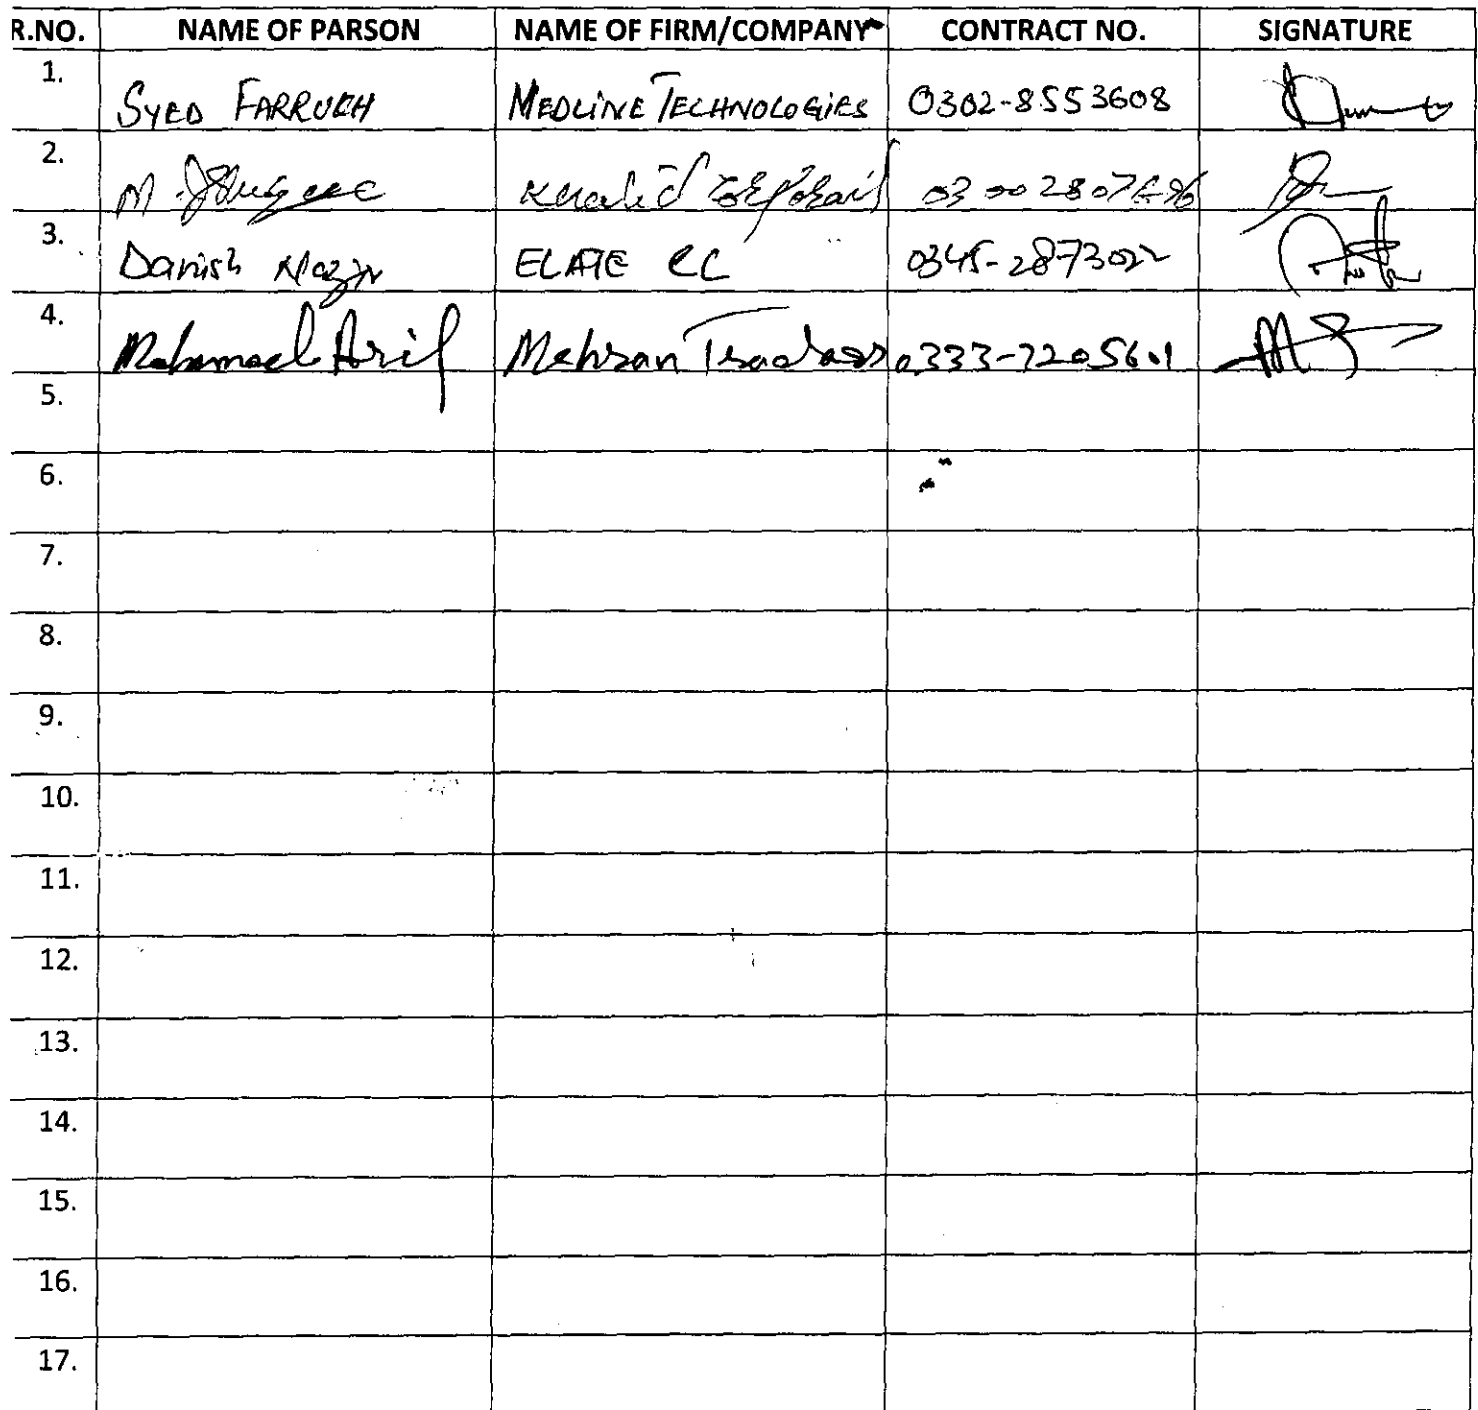 R.NO. NAME OF PARSON NAME OF FIRM/COMPANY CONTRACT NO. SIGNATURE
1. SYED FARRUKH MEDLINE TECHNOLOGIES 0302-8553608
2. M. Khalid
3. Danish Nazir CC 0345-2873022
4. Mohammad Arif Mehran Traders 0333-7205601
5.
6.
7.
8.
9.
10.
11.
12.
13.
14.
15.
16.
17.